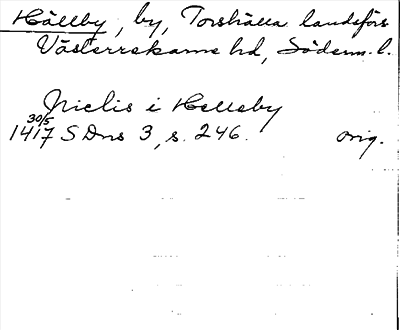 Hällby, by, Torshälla landsförs
Västerrekarne hd, Söderm. l.
Nielis i Helleby
30/5
1417 S Dns 3, s. 246. orig.